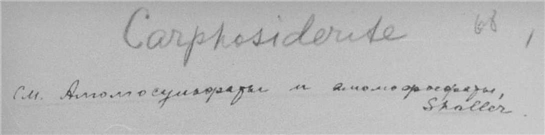 Carphosiderite 68
см. Алюмосульфаты и алюмофосфаты,
Shaller.